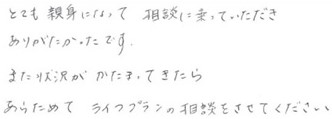 とても 親身になって 相談に乗っていただき
ありがたかったです.
また状況が かたまってきたら
あらためて ライフプランの相談をさせてください